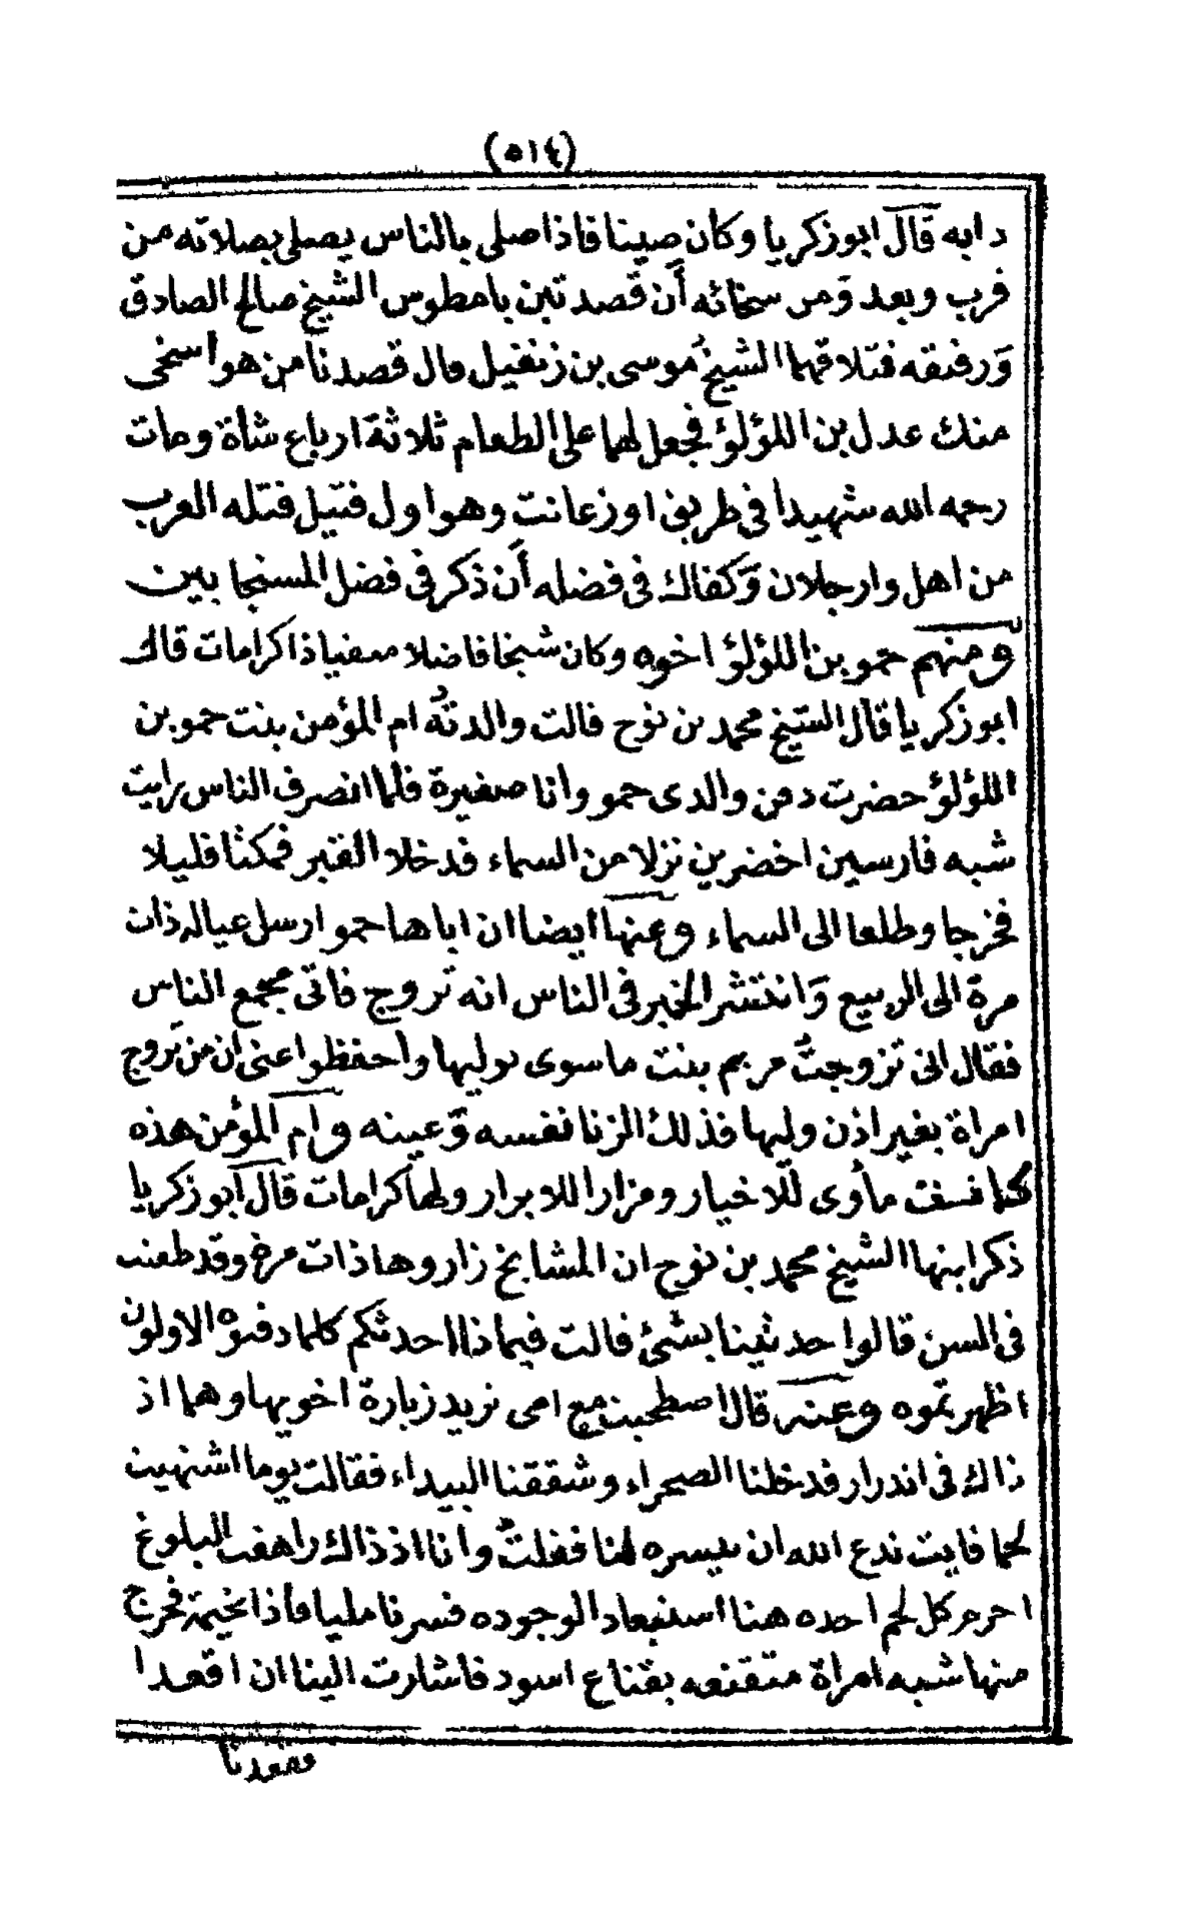 (٥١٤)
دابه قال ابو زكريا وكان صيتا فاذا صلى بالناس يصلى بصلاته من
قرب وبعد ومن سخائه أن قصد تين بامطوس الشيخ صالح الصادق
ورفيقه فتلاقهما الشيخ موسى بن زنغيل قال قصدنا من هو اسخى
منك عدل بن اللؤلؤ فجعل لهما على الطعام ثلاثة ارباع شأة ومات
رحمه الله شهيدا فى طريق اوزعانت وهو اول قتيل قتله العرب
من اهل وارجلان وكفاك فى فضله أن ذكر فى فضل المسنجابين
ومنهم حمو بن اللؤلؤ اخوه وكان شيخا فاضلا مفتيا ذا كرامات قال
ابو زكريا قال الشيخ محمد بن نوح قالت والدته ام المؤمن بنت حمو بن
اللؤلؤ حضرت دفن والدى حمو وانا صغيرة فلما انصرف الناس رايت
شبه فارسين اخضرين نزلا من السماء قد خلا القبر فمكثا قليلا
فخرجا وطلعا الى السماء وعنها ايضا ان اباها حمو ارسل عياله ذات
مرة الى الربيع وانتشر الخبر فى الناس انه تزوج فاتى مجمع الناس
فقال انى تزوجت مريم بنت ماسوى بوليها واحفظوا عنى ان من تزوج
امراة بغير اذن وليها فذلك الزنا نفسه وعينه وام المؤمن هذه
كانت مأوى للاخيار ومزارا للابرار ولها كرامات قال ابو زكريا
ذكر ابنها الشيخ محمد بن نوح ان المشايخ زاروها ذات مرة وقد طعنت
فى السن قالوا حدثينا بشئ قالت فيما ذا احدثكم كلما دفنوه الاولون
اظهرتموه وعنه قال اصطحبت مع امى نريد زيارة اخويها وهما اذ
ذاك فى اندرار فدخلنا الصحراء وشققنا البيداء فقالت يوما اشتهيت
لحما فايت ندع الله ان ييسره لنا فقلت وانا اذ ذاك راهقت البلوغ
احرم كل لحم احده هنا استبعاد الوجوده فسرنا مليا فاذا بخيمة فخرج
منها شبه امراة متقنعه بقناع اسود فاشارت الينا ان اقعدا
وقعدنا